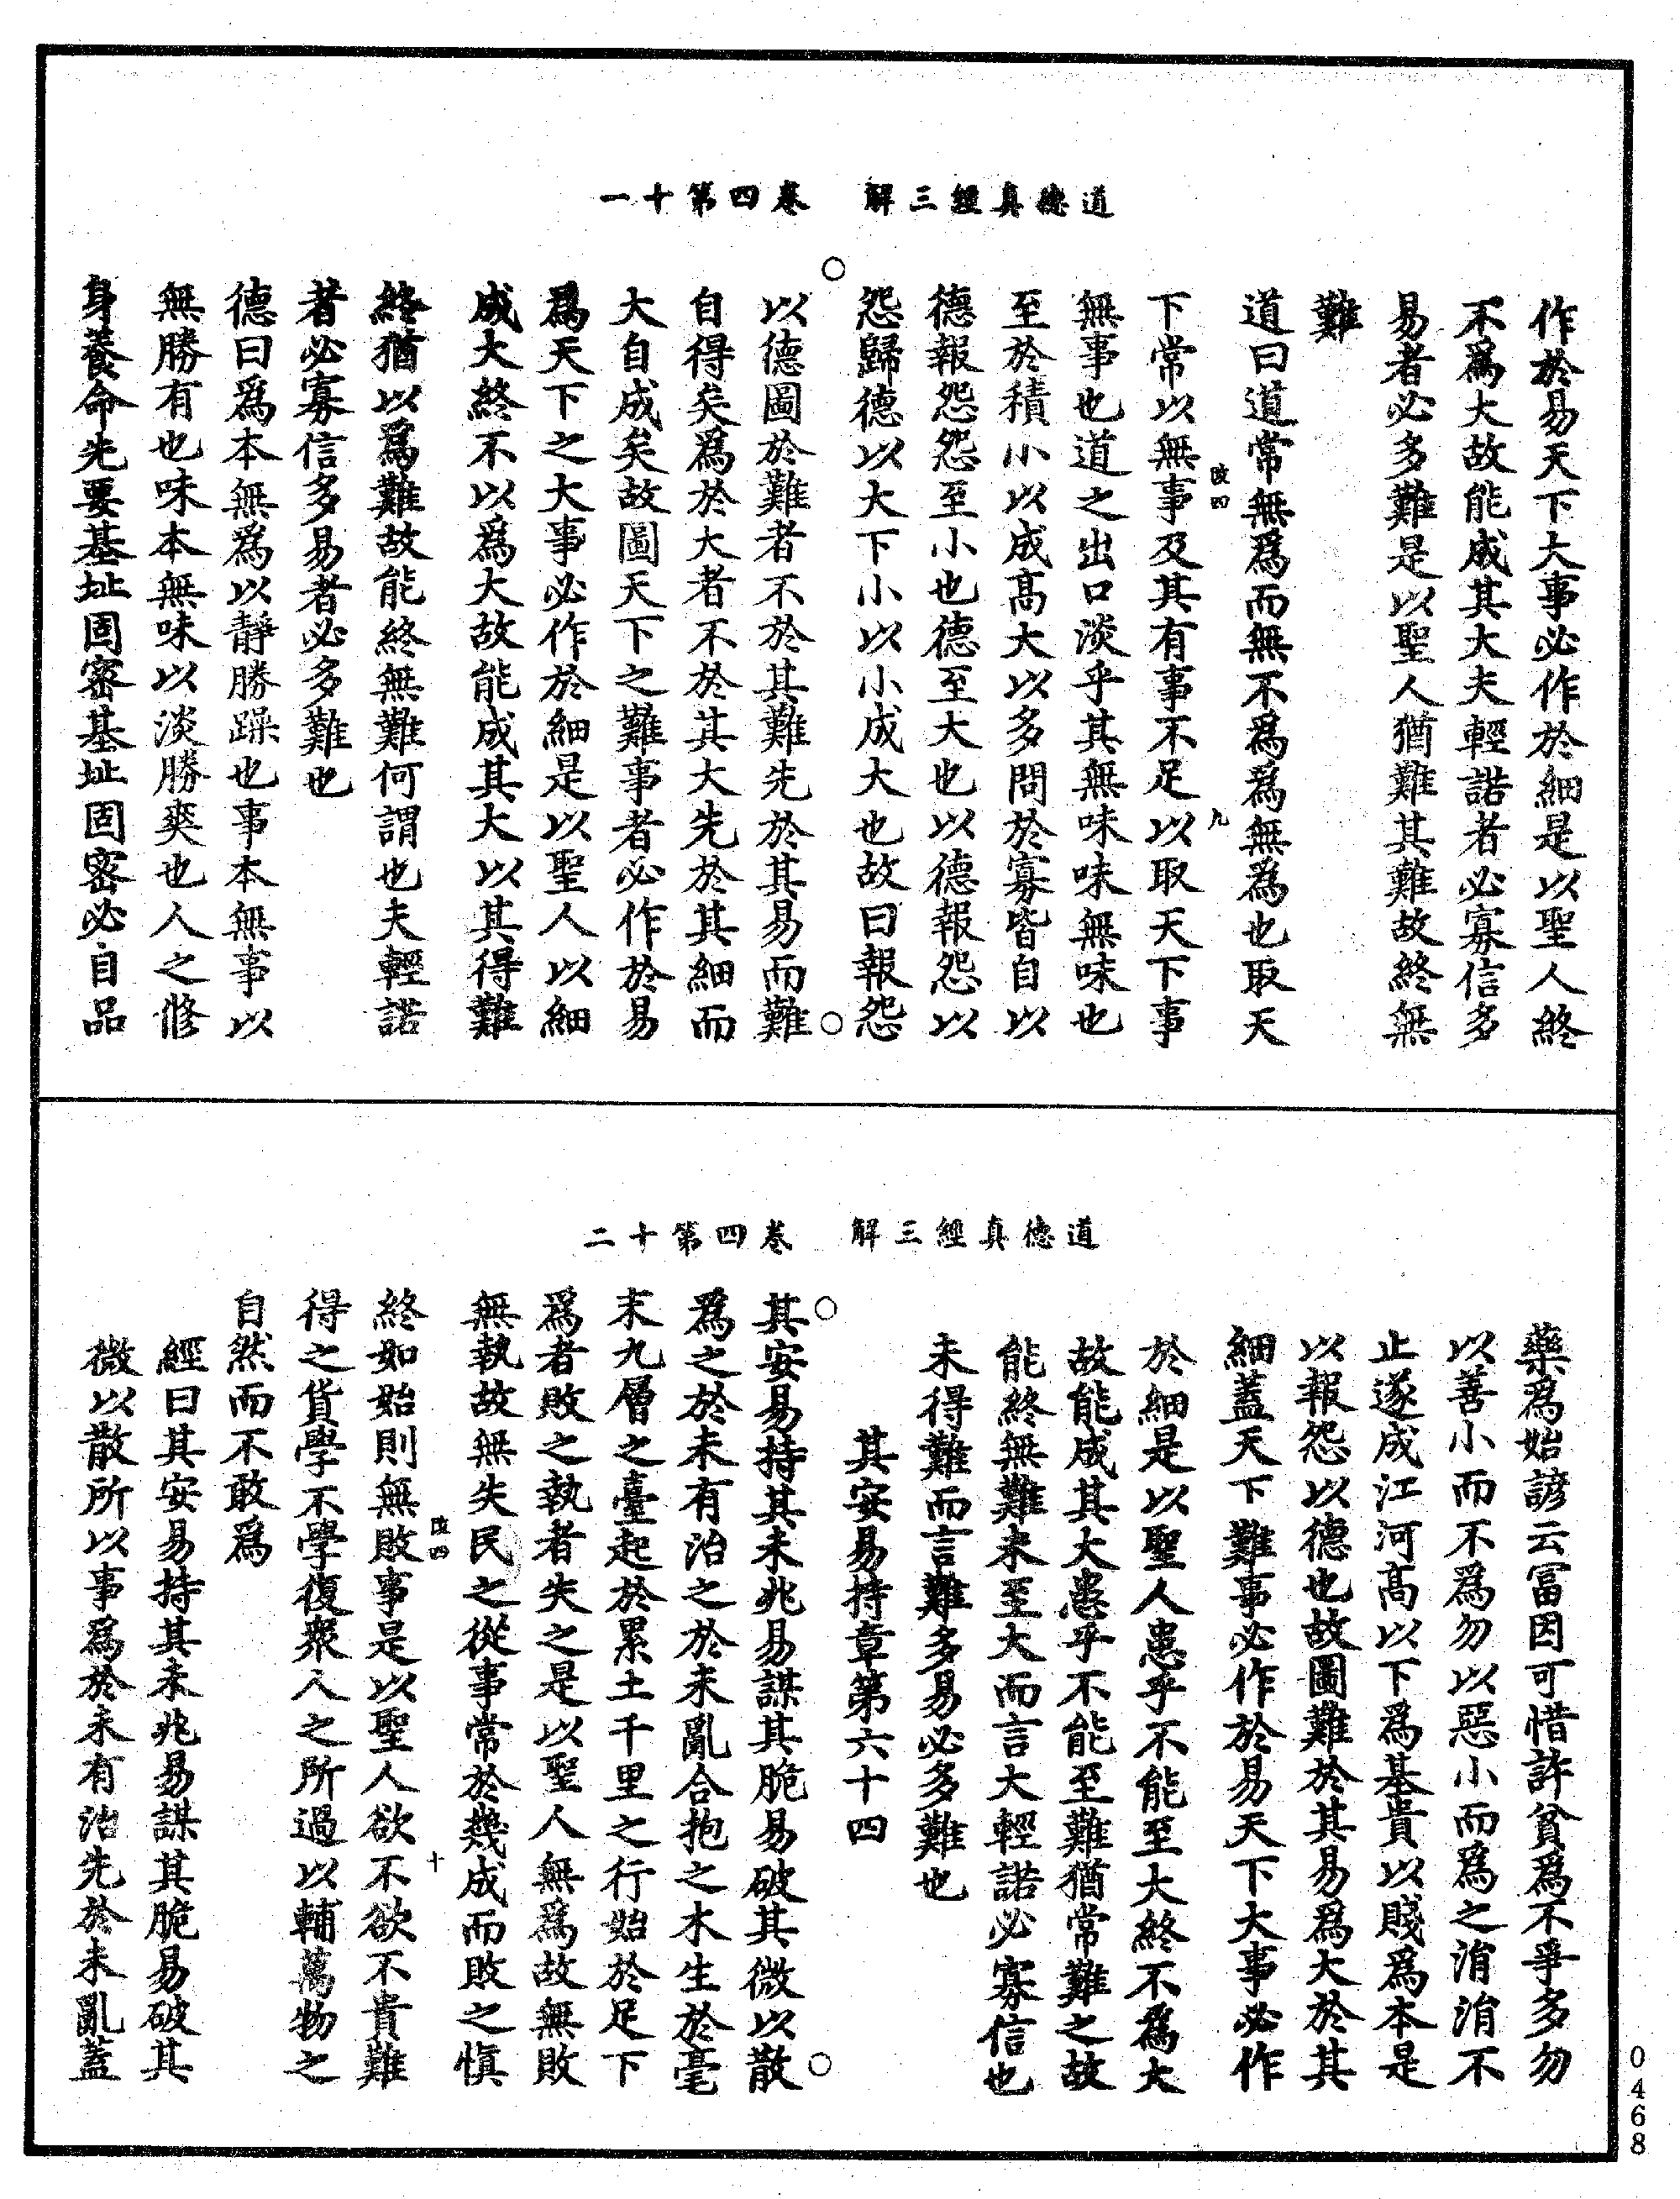 道德真經三解　卷四第十一
作於易天下大事必作於細是以聖人終
不爲大故能成其大夫輕諾者必寡信多
易者必多難是以聖人猶難其難故終無
難
道曰道常無爲而無不爲爲無爲也取天
下常以無事及其有事不足以取天下事
無事也道之出口淡乎其無味味無味也
至於積小以成高大以多問於寡皆自以
德報怨怨至小也德至大也以德報怨以
怨歸德以大下小以小成大也故曰報怨
以德圖於難者不於其難先於其易而難
自得矣爲於大者不於其大先於其細而
大自成矣故圖天下之難事者必作於易
爲天下之大事必作於細是以聖人以細
成大終不以爲大故能成其大以其得難
終猶以爲難故能終無難何謂也夫輕諾
者必寡信多易者必多難也
德曰爲本無爲以靜勝躁也事本無事以
無勝有也味本無味以淡勝爽也人之修
身養命先要基址固密基址固密必自品
九
道德真經三解　卷四第十二
藥爲始諺云冨因可惜許貧爲不爭多勿
以善小而不爲勿以惡小而爲之涓涓不
止遂成江河高以下爲基貴以賤爲本是
以報怨以德也故圖難於其易爲大於其
細蓋天下難事必作於易天下大事必作
於細是以聖人患乎不能至大終不爲大
故能成其大患乎不能至難猶常難之故
能終無難未至大而言大輕諾必寡信也
未得難而言難多易必多難也
其安易持章第六十四
其安易持其未兆易謀其脆易破其微以散
爲之於未有治之於未亂合抱之木生於毫
末九層之臺起於累土千里之行始於足下
爲者敗之執者失之是以聖人無爲故無敗
無執故無失民之從事常於幾成而敗之慎
終如始則無敗事是以聖人欲不欲不貴難
得之貨學不學復衆人之所過以輔萬物之
自然而不敢爲
經曰其安易持其未兆易謀其脆易破其
微以散所以事爲於未有治先於未亂蓋
十
0468